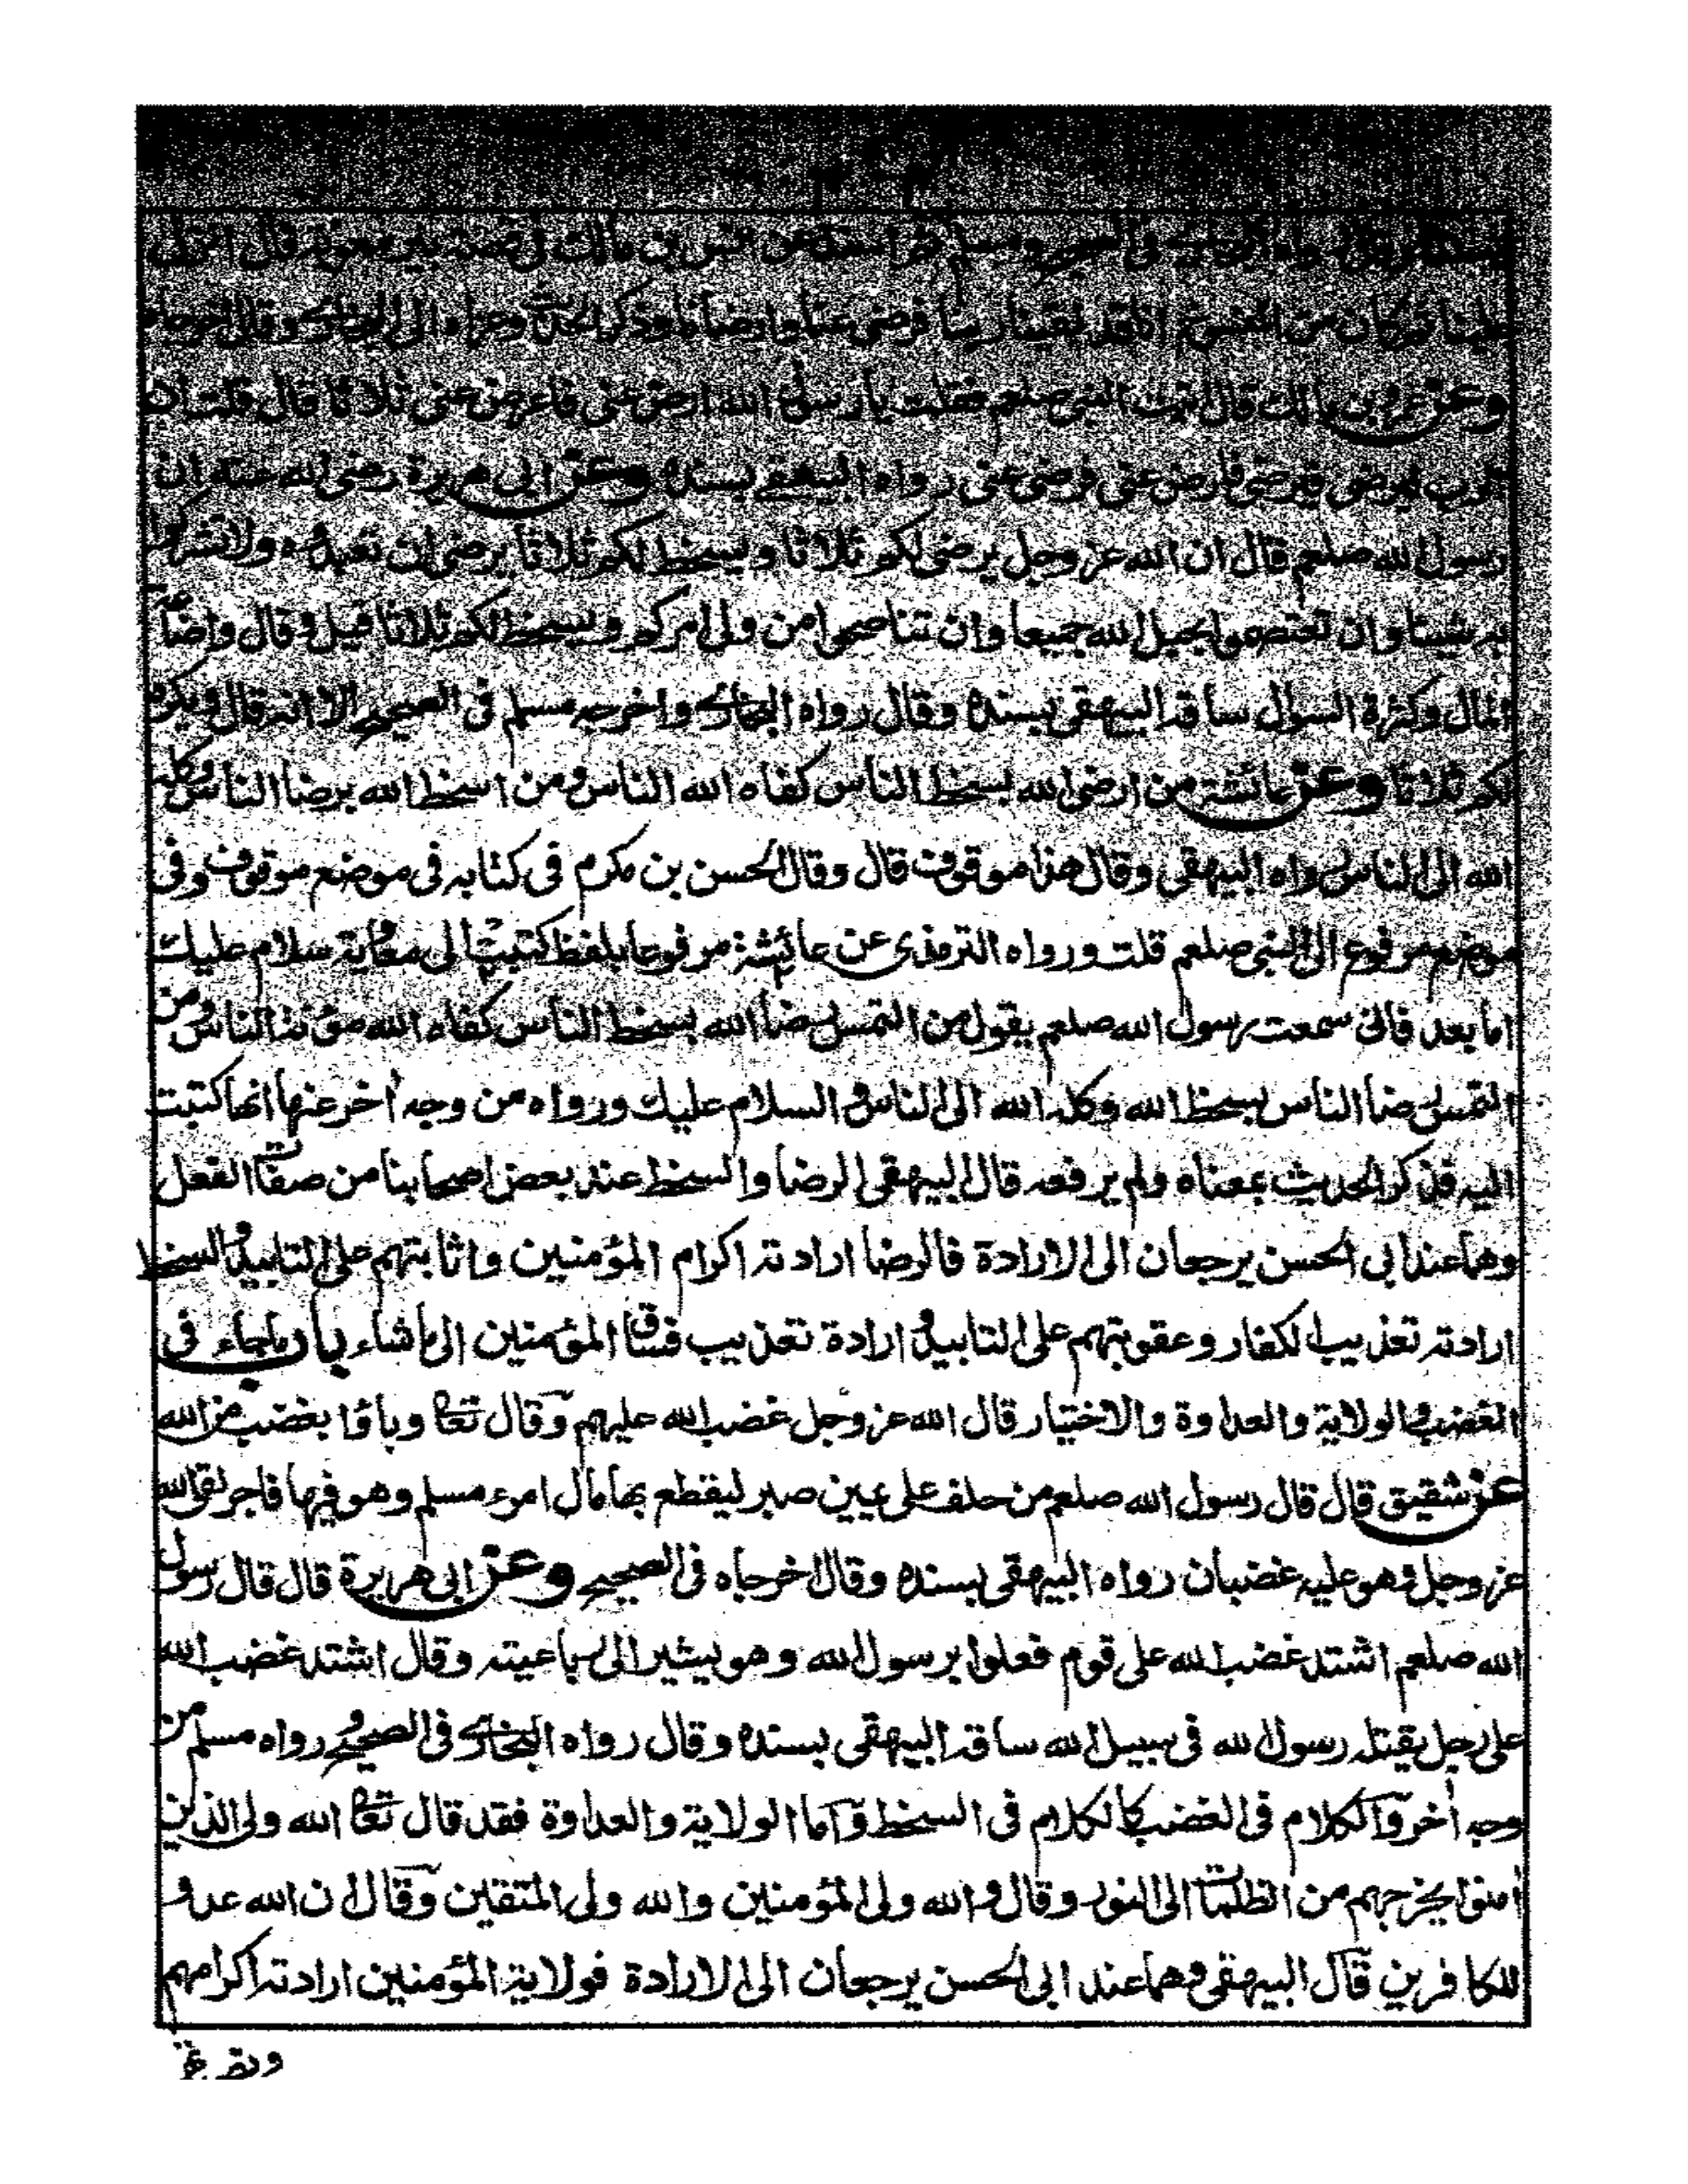 وقال رواه البخاري فى الصحيح ومسلم من اسحق عن انس بن مالك فى قصة بير معونة قال انزل
علينا ثم كان من المنسوخ انا قد لقينا ربنا فرضى عنا وارضانا وذكر الحديث وعزاه الى البخاري وقال اخرجاه
وعن عروبن مالك قال اتيت النبى صلعم فقلت يا رسول الله ارض عنى فاعرض عنى ثلاثا قال قلت ان
الرب ليرضى فيرضى فارض عنى فرضى عنى رواه البيهقى بسنده وعن ابى هريرة رضى الله عنه ان
رسول الله صلعم قال ان الله عز وجل يرضى لكم ثلاثا ويسخط لكم ثلاثا يرضى ان تعبدوه ولا تشركوا
به شيئا وان تعتصموا بحبل الله جميعا وان تناصحوا من ولى امركم ويسخط لكم ثلاثا قيل وقال واضاعة
المال وكثرة السوال ساقه البيهقى بسنده وقال رواه البخاري واخرجه مسلم فى الصحيح الا انه قال ويكره
لكم ثلاثا وعن عائشة من ارضى الله بسخط الناس كفاه الله الناس ومن اسخط الله برضا الناس وكله
الله الى الناس رواه البيهقى وقال هذا موقوف قال وقال الحسن بن مكرم فى كتابه فى موضع موقوف وفى
موضع مرفوع الى النبى صلعم قلت ورواه الترمذى عن عائشة مرفوعا بلفظ كتبت الى معاوية سلام عليك
اما بعد فانى سمعت رسول الله صلعم يقول من التمس رضا الله بسخط الناس كفاه الله مؤنة الناس ومن
التمس رضا الناس بسخط الله وكله الله الى الناس والسلام عليك ورواه من وجه أخر عنها انها كتبت
اليه فذكر الحديث بمعناه ولم يرفعه قال البيهقى الرضا والسخط عند بعض اصحابنا من صفات الفعل
وهما عند ابى الحسن يرجعان الى الارادة فالرضا ارادته اكرام المؤمنين واثابتهم على التابيد والسخط
ارادته تعذيب الكفار وعقوبتهم على التابيد وارادة تعذيب فساق المؤمنين الى ما شاء باب ما جاء فى
الغضب والولاية والعداوة والاختيار قال الله عز وجل غضب الله عليهم وقال تعا وباؤا بغضب من الله
عن شقيق قال قال رسول الله صلعم من حلف على يمين صبر ليقطع بها مال امرء مسلم وهو فيها فاجر لقى الله
عز وجل وهو عليه غضبان رواه البيهقى بسنده وقال اخرجاه فى الصحيح وعن ابى هريرة قال قال رسول
الله صلعم اشتد غضب الله على قوم فعلوا برسول الله وهو يشير الى رباعيته وقال اشتد غضب الله
على رجل يقتله رسول الله فى سبيل الله ساقه البيهقى بسنده وقال رواه البخاري فى الصحيح ورواه مسلم من
وجه أخر والكلام فى الغضب كالكلام فى السخط واما الولاية والعداوة فقد قال تعا الله ولى الذين
امنوا يخرجهم من الظلمات الى النور وقال والله ولى المؤمنين والله ولى المتقين وقال ان الله عدو
للكافرين قال البيهقى وهما عند ابى الحسن يرجعان الى الارادة فولاية المؤمنين ارادته اكرامهم